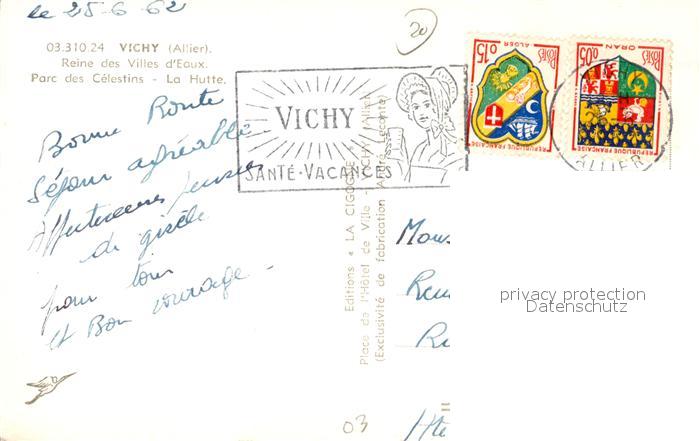 le 25-6-62
20
03.310.24 VICHY (Allier).
Reine des Villes d'Eaux.
Parc des Célestins - La Hutte.
Bonne Route
Séjour agréable
Affectueuses pensées
de gisèle
pour tous
et Bon courage -
VICHY
SANTÉ-VACANCES
Editions « LA CIGOGNE »
Place de l'Hôtel de Ville - VICHY (Allier)
(Exclusivité de fabrication André Leconte)
0,15 POSTES
ALGER
REPUBLIQUE FRANÇAISE
0,05 POSTES
ORAN
REPUBLIQUE FRANÇAISE
ALLIER
Mons
Hte
03
privacy protection
Datenschutz